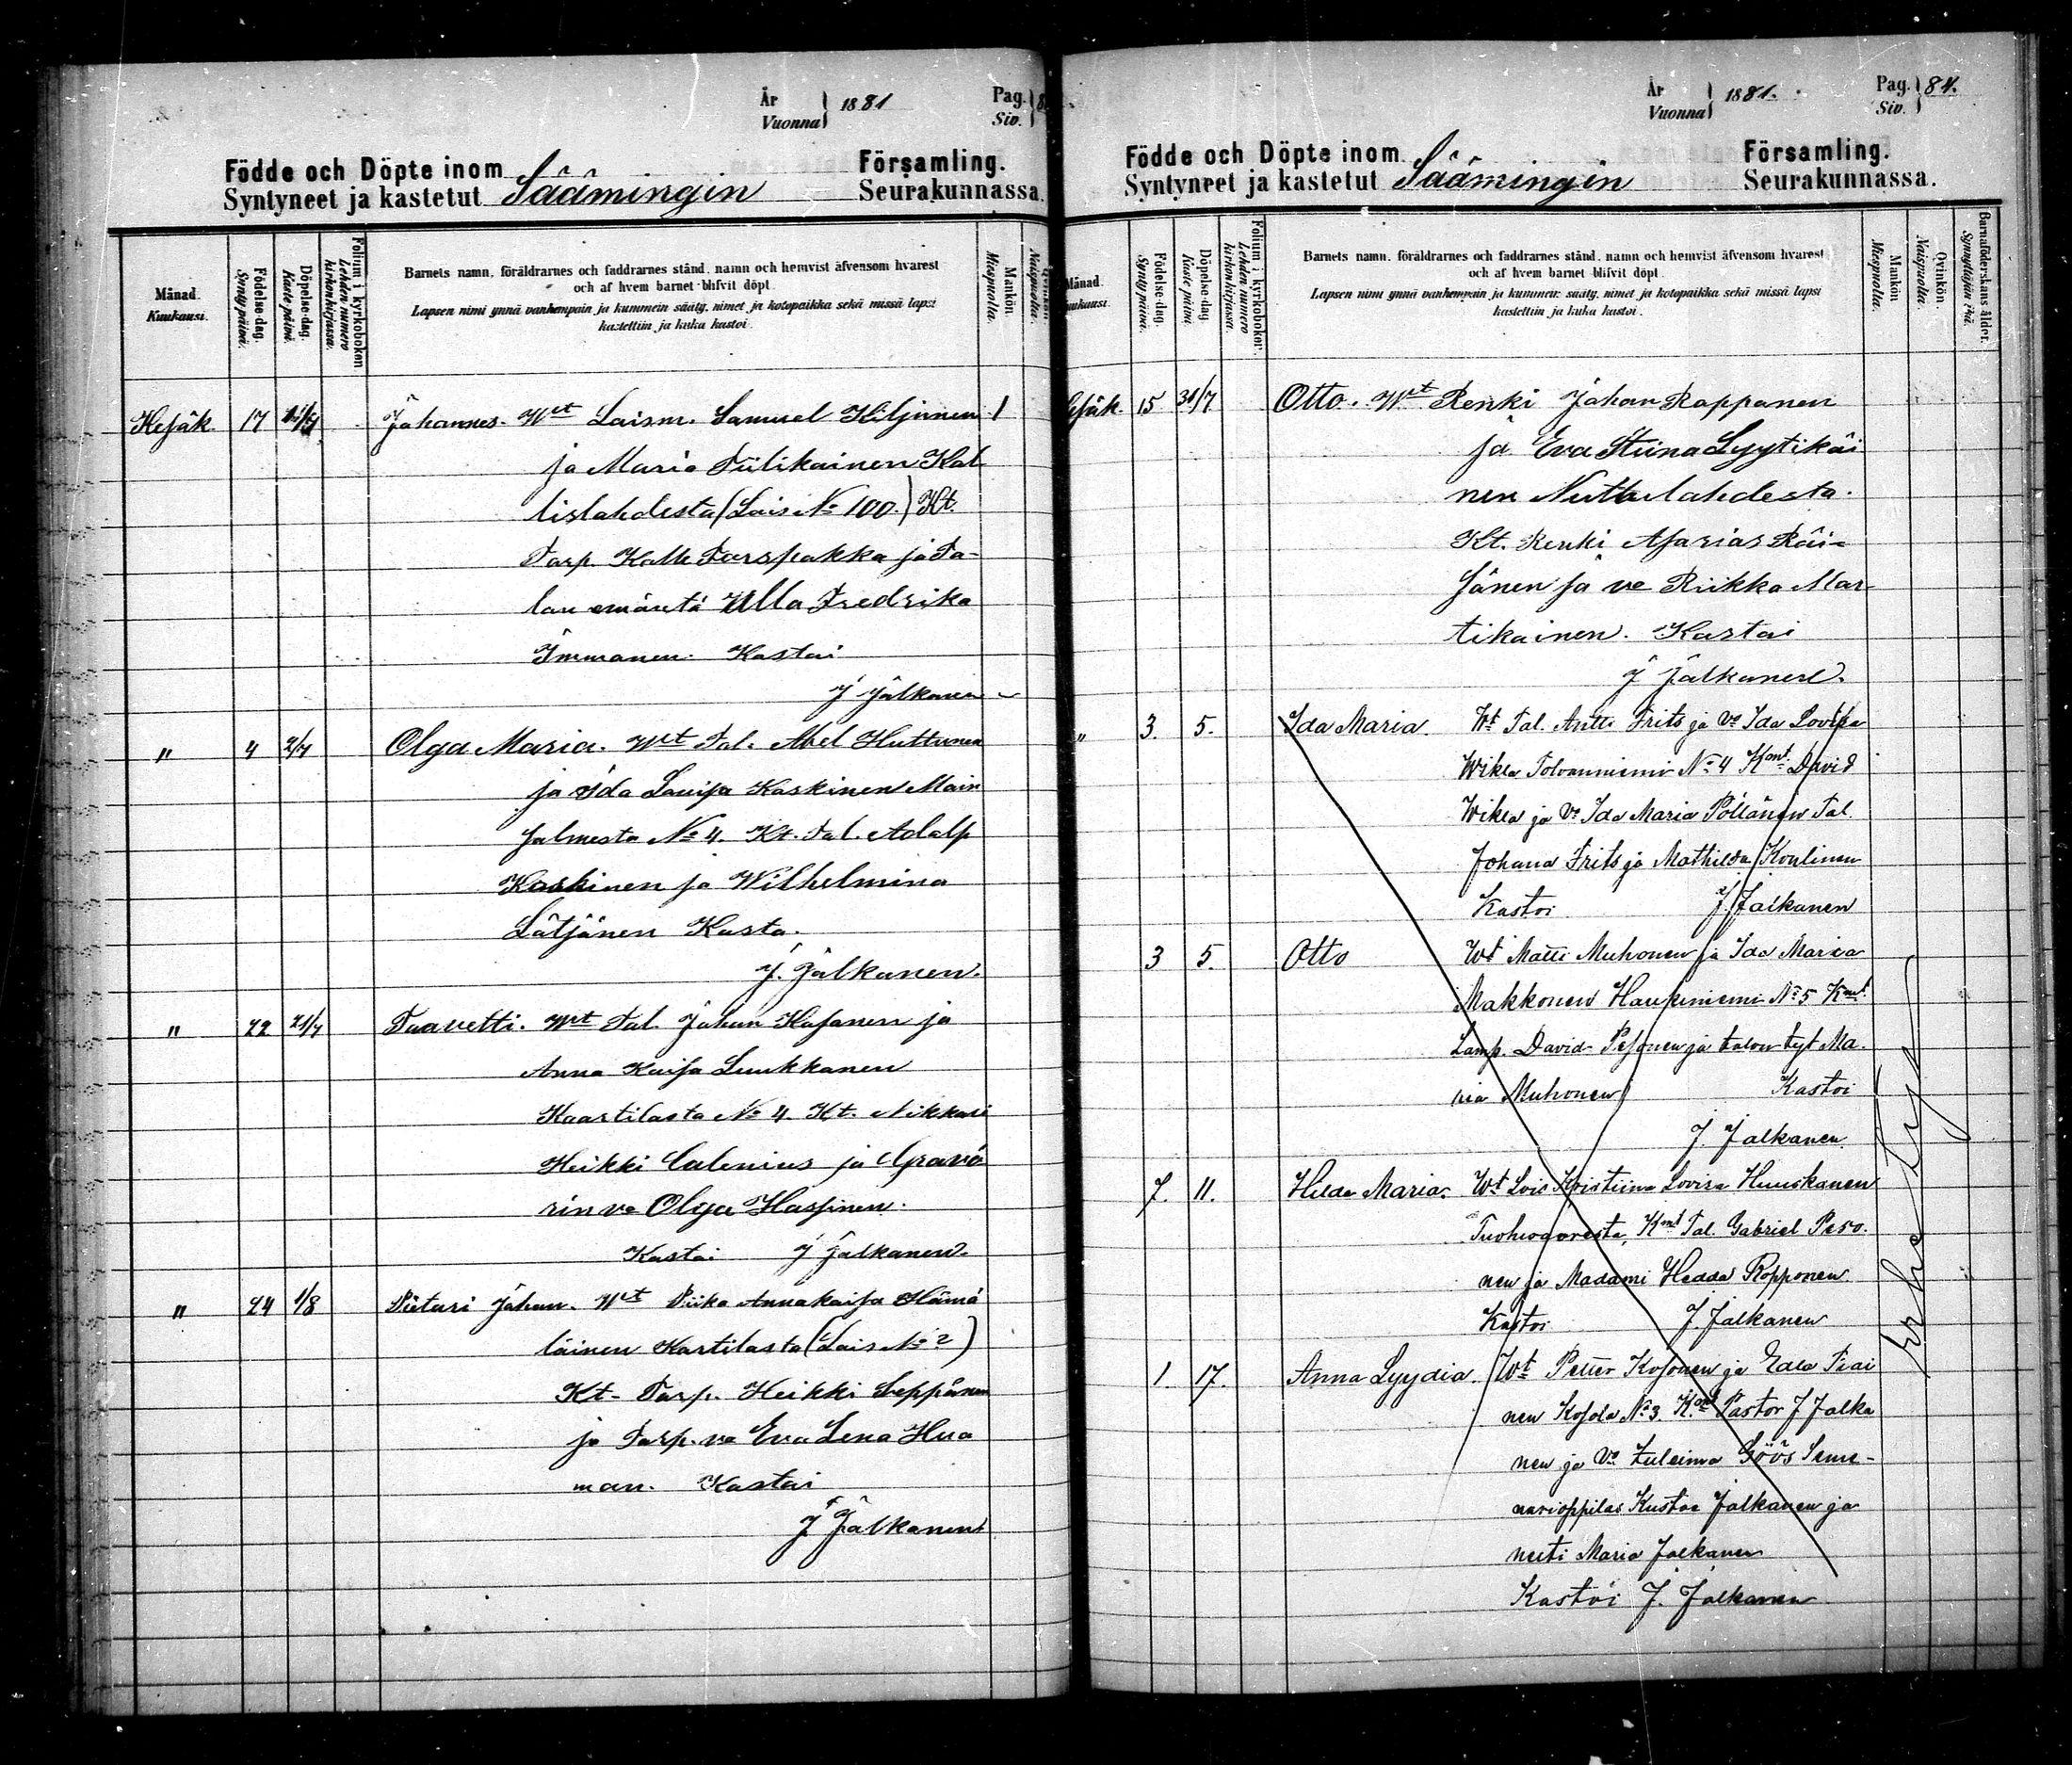 År
Vuonna
1881
Pag.
Siv.
Födde och Döpte inom
Syntyneet ja kastetut
Säämingin
Församling.
Seurakunnassa.
Månad.
Kuukausi.
Födelse-dag.
Synty päivä.
Döpelse-dag.
Kaste päivä.
Folium i kyrkoboken
Lehden numero
kirkonkirjassa.
Barnets namn, föräldrarnes och faddrarnes stånd, namn och hemvist äfvensom hvarest
och af hvem barnet blifvit döpt.
Lapsen nimi ynnä vanhempain ja kummein sääty, nimet ja kotopaikka sekä missä lapsi
kastettiin ja kuka kastoi.
Mankön.
Miespuolta.
Hesäk. 17 Johannes. Wet Loism. Samuel Hiljunen 1
ja Maria Tiilikainen Kal
lislahdesta (Lois No 100.) Kt.
Torp. Kalle Torspakka ja Ta-
lan emäntä Ulla Fredrika
Immonen. Kastoi
J Jalkanen
" 4 2/7 Olga Maria. Wet Tal. Abel Huttunen
ja Ida Lovisa Kaskinen Moin
salmesta No 4. Kt. Tal. Adolf
Kaskinen ja Wilhelmina
Lätjänen Kasto.
J. Jalkanen.
" 22 Taavetti. Wet Tal. Johan Kosonen ja
Anna Kaisa Luukkanen
Kaartilasta No 4. Kt. Nikkari
Heikki Calenius ja
rin va Olga Hassinen.
Kastoi J Jalkanen.
" 24 1/8 Pietari Johan. Wet Piika Annakaisa Hämä
läinen Kartilasta (Lois No 2)
Kt- Torp. Heikki Leppänen
ja Torp. va Eva Lena Hua
man. Kastoi
J Jalkanen
År
Vuonna
1881.
Pag.
Siv.
84.
Födde och Döpte inom
Syntyneet ja kastetut
Säämingin
Församling.
Seurakunnassa.
Månad.
Födelse-dag.
Synty päivä.
Döpelse-dag.
Kaste päivä
Folium i kyrkoboken.
Lehden numero
kirkonkirjassa.
Barnets namn, föräldrarnes och faddrarnes stånd, namn och hemvist äfvensom hvarest
och af hvem barnet blifvit döpt.
Lapsen nimi ynnä vanhempain ja kummein sääty, nimet ja kotopaikka sekä missä lapsi
kastettiin ja kuka kastoi.
Mankön
Miespuolta.
Qvinkön.
Naispuolta.
Barnaföderskans ålder.
Synnyttäjän ikä.
15 31/7 Otto. Wet Renki Johan Rapponen
ja Eva Stiina Lyytikäi
nen lahdesta.
Kt. Renki Asarias Räi-
sänen ja va Riikka Mar
tikainen. Kastoi
J Jalkanen.
" 3 5. Ida Maria. Wt Tal. Antti Frits ja Vo Ida Lovisa
Wikla Tolvanniemi No 4 Kmt David
Wikla ja Vo Ida Maria Pöllänen Tal.
Johana Frits ja Mathilda Koulinen
Kastoi J. Jalkanen
3 5. Otto Wt Matti Muhonen ja Ida Maria
Makkonen Haukiniemi No 5 Kmt
Lamp. David Pesonen ja talon tyt Ma.
ria Muhonen Kastoi
J. Jalkanen
7. 11. Hilda Maria. Wt Lois Kristiina Lovisa Huuskanen
Kmt Tal. Gabriel Peso.
nen ja Madami Hedda Ropponen
Kastoi J. Jalkanen
1. 17. Anna Lyydia. Wt Petter Kosonen ja Edla Piai
nen Kosola No 3. Kmt Pastor J Jalka
nen ja Vo Zuleima Göös Semi-
narioppilas Kustaa Jalkanen ja
neiti Maria Jalkanen
Kastoi J. Jalkanen